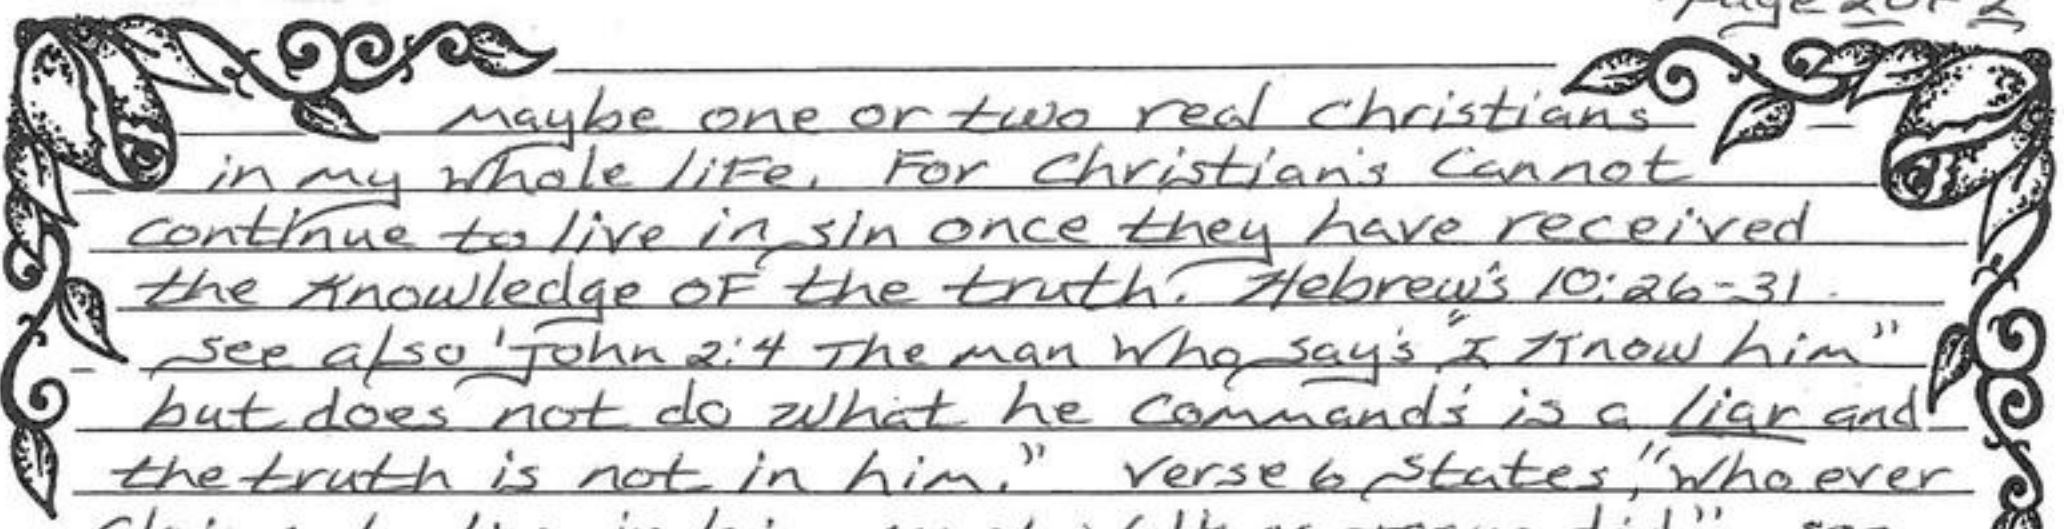 Page 2 of 2
Maybe one or two real Christians
in my whole life. For Christian's Cannot
continue to live in sin once they have received
the Knowledge of the truth. Hebrew's 10:26-31.
see also 'John 2:4 The man Who say's "I Know him"
but does not do what he Command's is a liar and
the truth is not in him." Verse 6 states, "Who ever